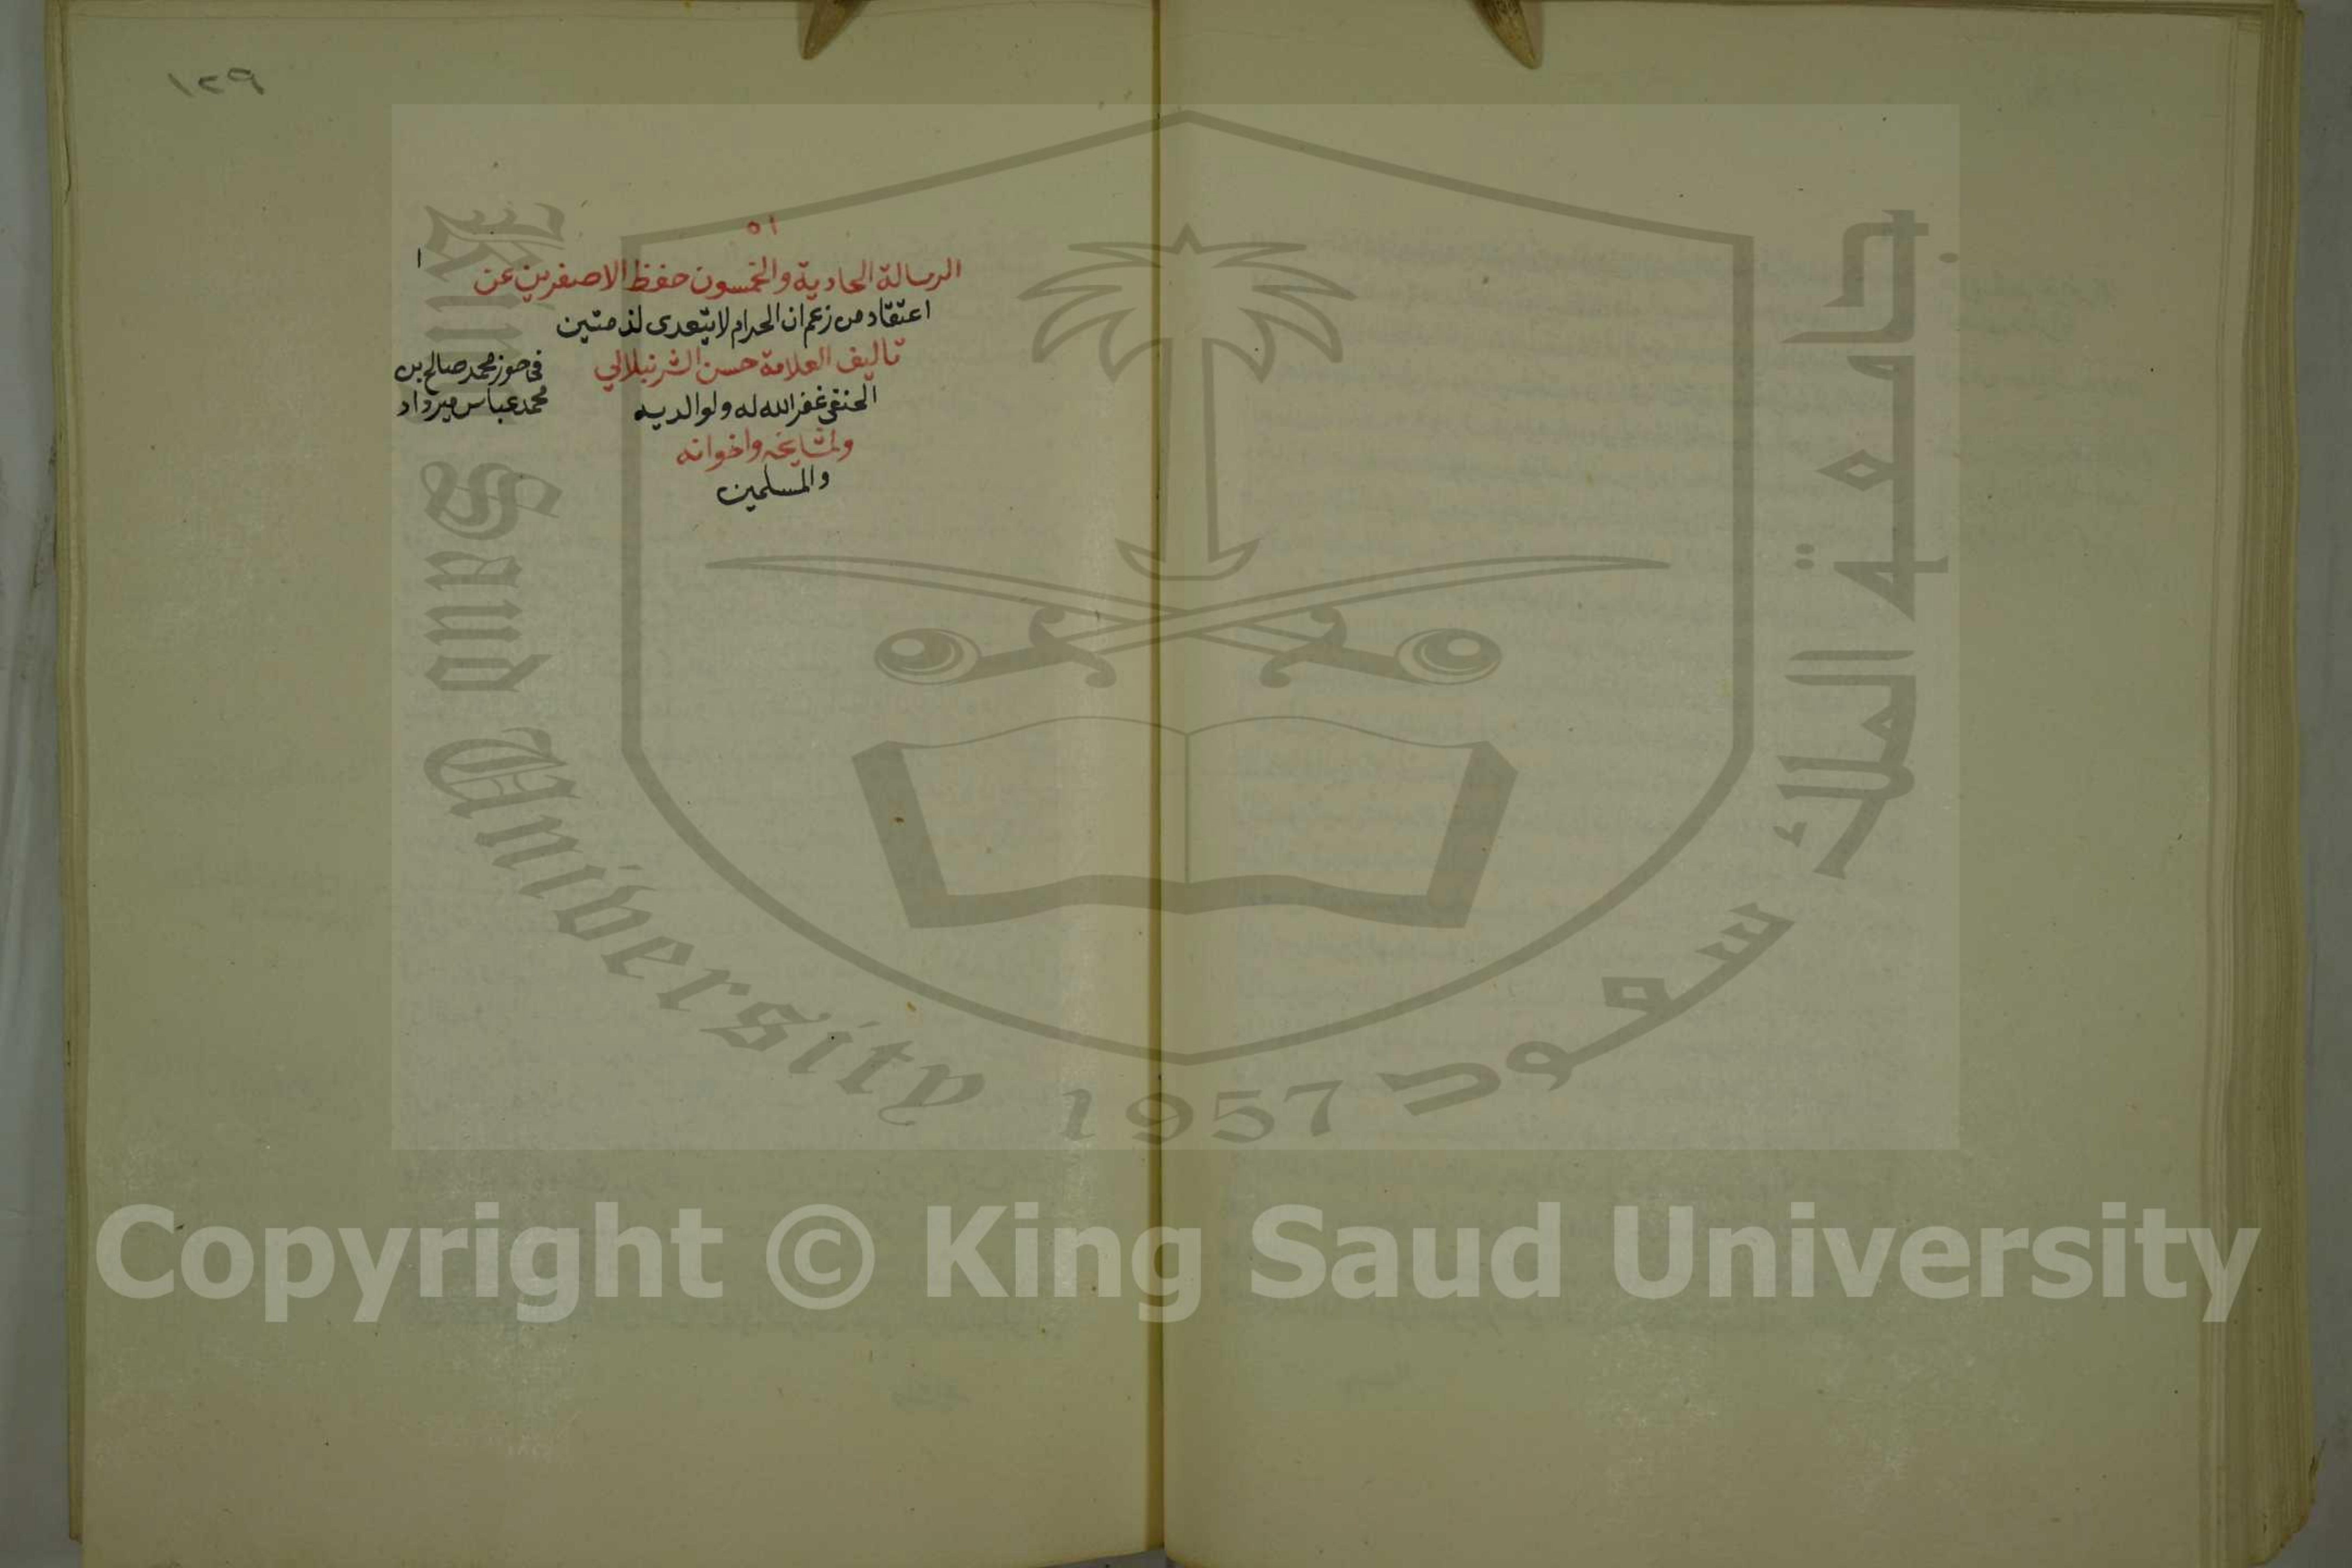 ١٢٩
٥١
١
الرسالة الحادية والخمسون حفظ الاصغرين عن
اعتقاد من زعم ان الحرام لا يتعدى لذمتين
تاليف العلامة حسن الشرنبلالي
الحنفي غفر الله له ولوالديه
ولمشايخه واخوانه
والمسلمين
في حوز محمد صالح بن
محمد عباس ميرداد
جامعة الملك سعود
King Saud University
1957
Copyright © King Saud University